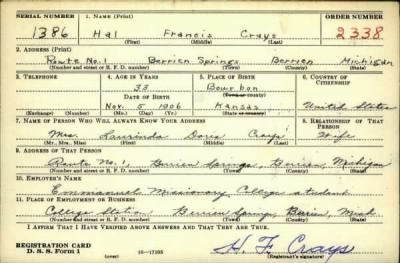 SERIAL NUMBER 1. NAME (Print) ORDER NUMBER
1386 Hal Francis Crays 2338
(First) (Middle) (Last)
2. ADDRESS (Print)
Route No. 1 Berrien Springs Berrien Michigan
(Number and street or R. F. D. number) (Town) (County) (State)
3. TELEPHONE 4. AGE IN YEARS 5. PLACE OF BIRTH 6. COUNTRY OF CITIZENSHIP
33 Bourbon
DATE OF BIRTH (Town or county)
Nov. 5 1906 Kansas United States
(Exchange) (Number) (Mo.) (Day) (Yr.) (State or country)
7. NAME OF PERSON WHO WILL ALWAYS KNOW YOUR ADDRESS 8. RELATIONSHIP OF THAT PERSON
Mrs. Laurinda Doris Crays Wife
(Mr., Mrs., Miss) (First) (Middle) (Last)
9. ADDRESS OF THAT PERSON
Route No. 1, Berrien Springs, Berrien, Michigan
(Number and street or R. F. D. number) (Town) (County) (State)
10. EMPLOYER'S NAME
Emmanuel Missionary College student
11. PLACE OF EMPLOYMENT OR BUSINESS
College Station Berrien Springs, Berrien, Mich
(Number and street or R. F. D. number) (Town) (County) (State)
I AFFIRM THAT I HAVE VERIFIED ABOVE ANSWERS AND THAT THEY ARE TRUE.
REGISTRATION CARD
D. S. S. Form 1 (over) 16-17105 H. F. Crays
(Registrant's signature)